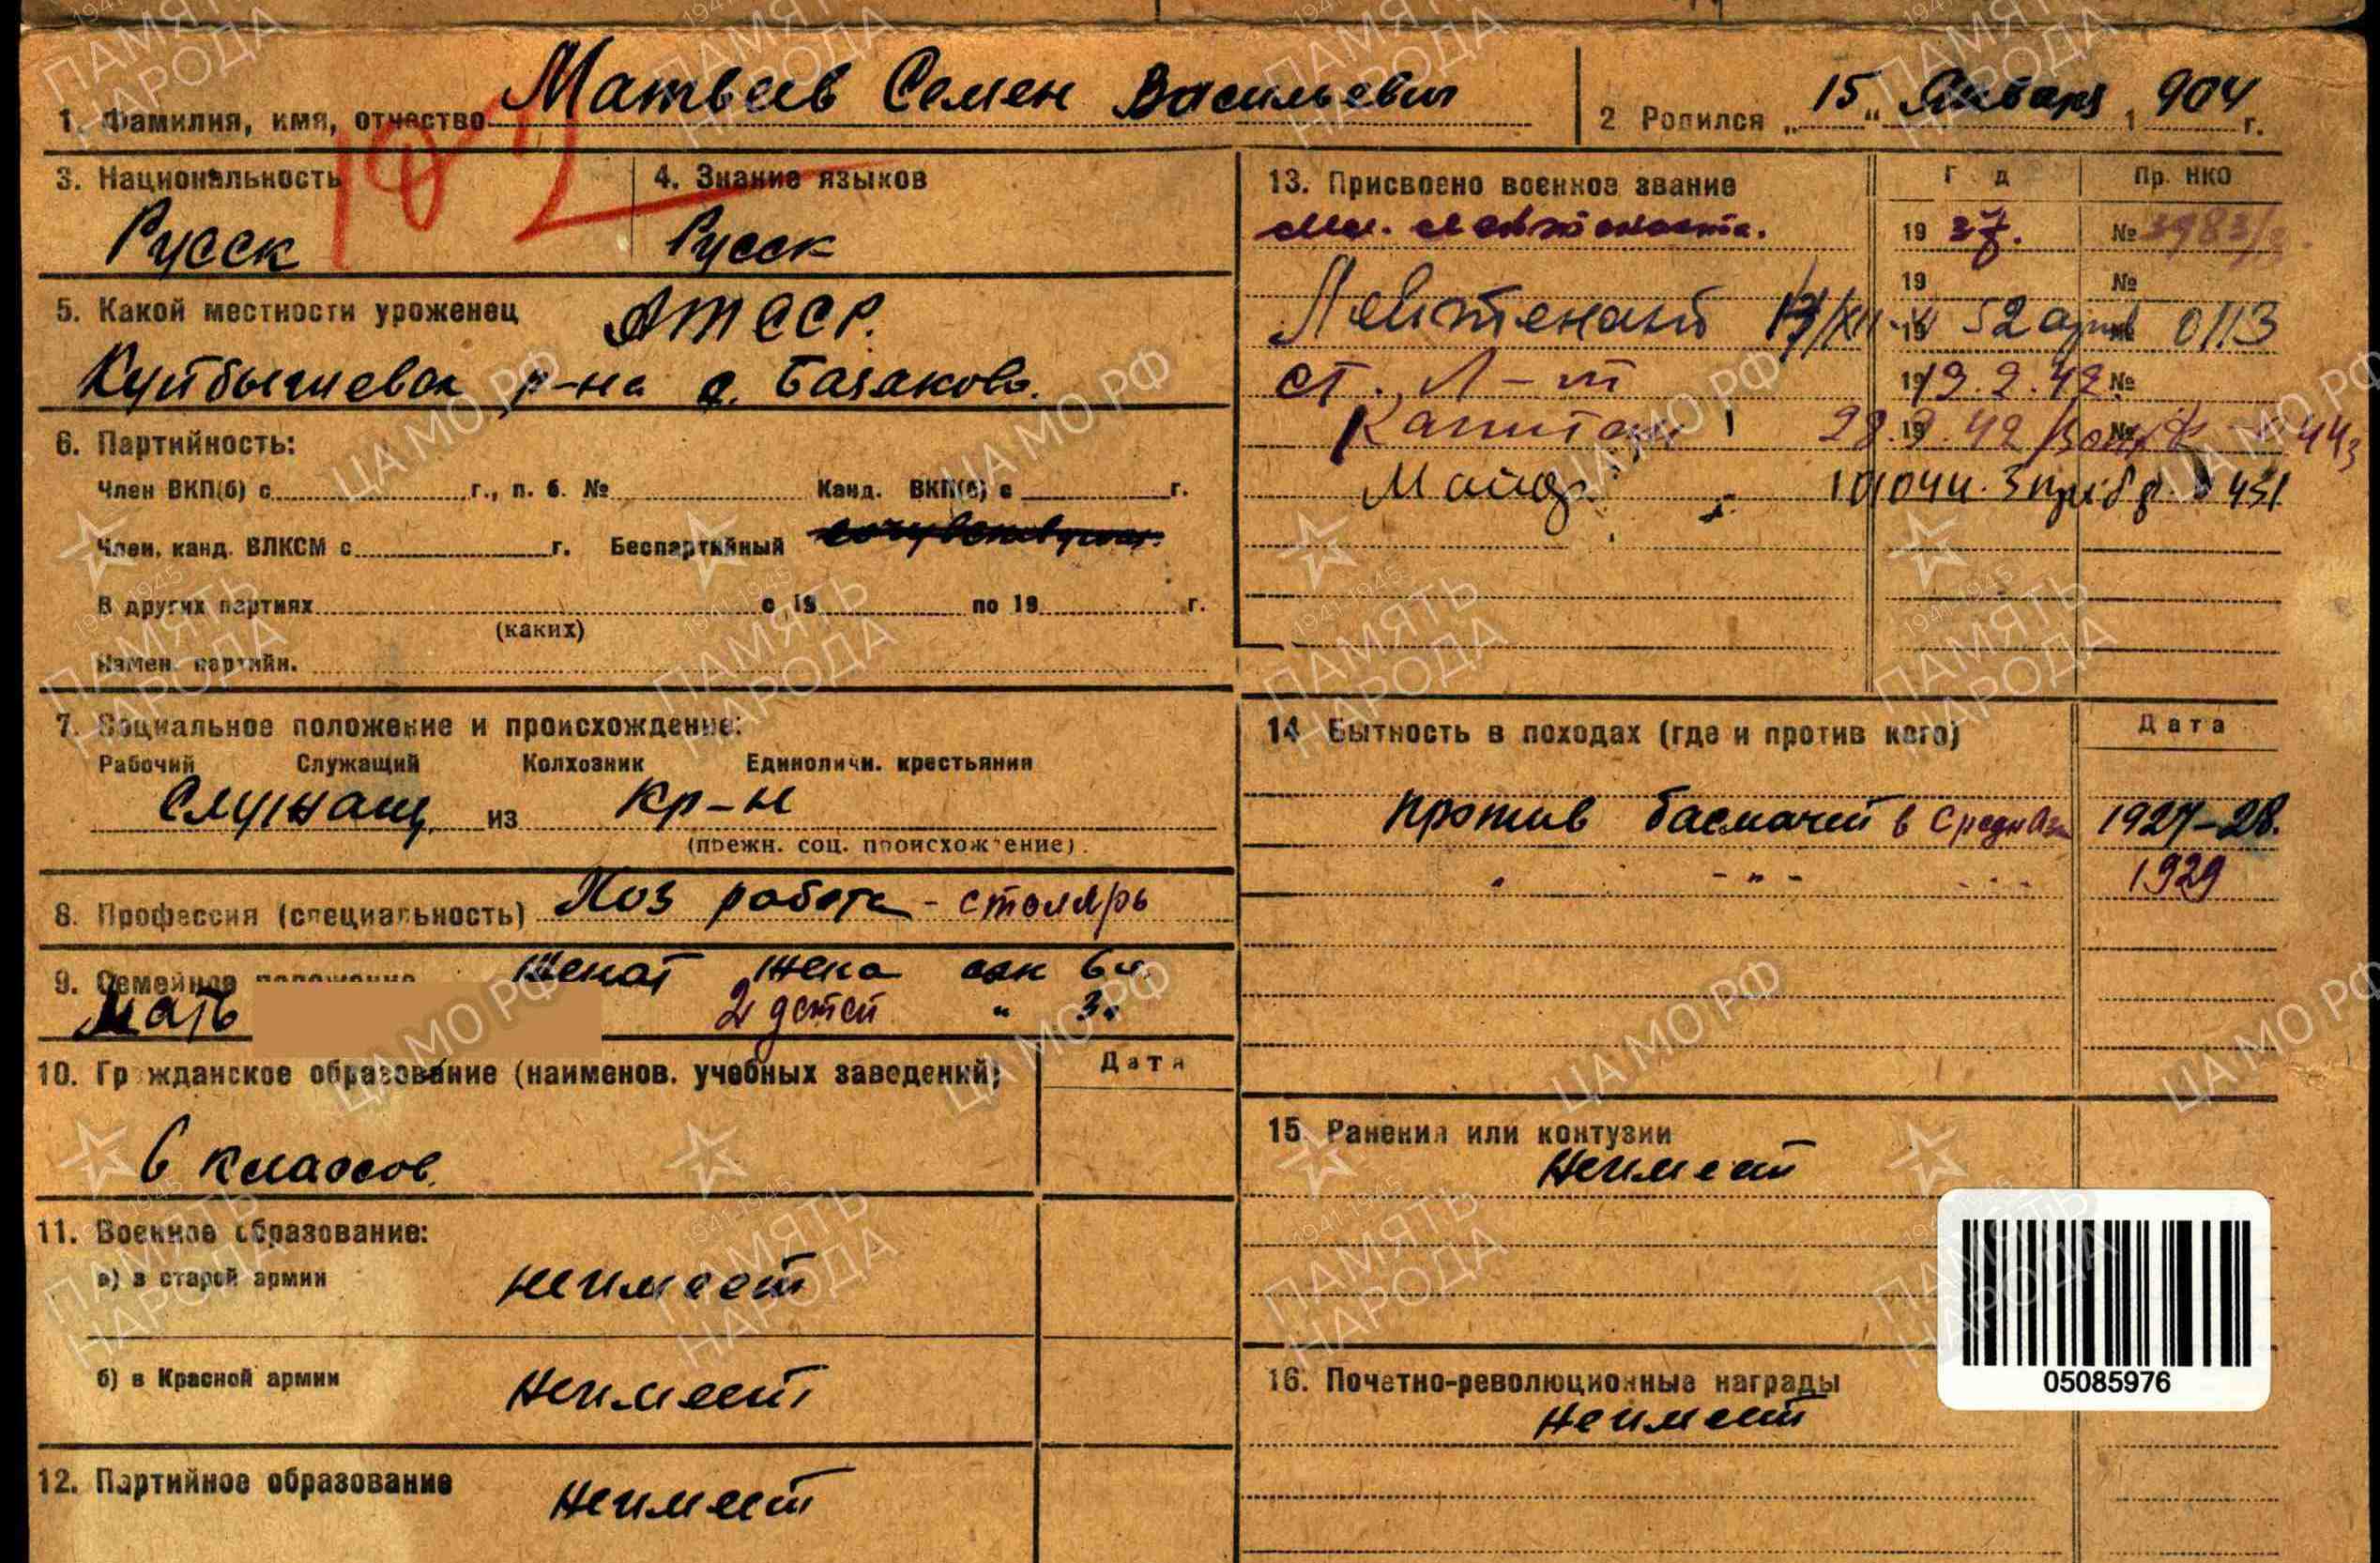 1. Фамилия, имя, отчество Матвеев Семен Васильевич
2 Родился „15“ Января 1904 г.
3. Национальность
Русск
4. Знание языков
Русск
5. Какой местности уроженец АТССР.
Куйбышевск р-на с. Базаково.
6. Партийность:
Член ВКП(б) с г., п. б. № Канд. ВКП(б) с г.
Член, канд. ВЛКСМ с г. Беспартийный
В других партиях с 19 по 19 г.
(каких)
Измен. партийн.
7. Социальное положение и происхождение:
Рабочий Служащий Колхозник Единоличн. крестьянин
Служащ. из кр-н
(прежн. соц. происхождение).
8. Профессия (специальность) Хоз работа - столярь
9. Семейное положение Женат жена 6
Мать 2 детей " 3.
10. Гражданское образование (наименов. учебных заведений) Дата
6 классов.
11. Военное образование:
а) в старой армии неимеет
б) в Красной армии Неимеет
12. Партийное образование Неимеет
13. Присвоено военное звание Г д Пр. НКО
Мл. лейтенанта. 19 37. № 3983/
19 №
Лейтенант 52 0113
ст. Л-т 19.2.42 №
Капитан 42 443
Майор 431
14 Бытность в походах (где и против кого) Дата
против басмачей в Средн Аз 1927-28.
" - " - 1929
15. Ранения или контузии
Неимеет
16. Почетно-революционные награды
Неимеет
05085976
1941-1945
ПАМЯТЬ
НАРОДА
ЦА МО РФ